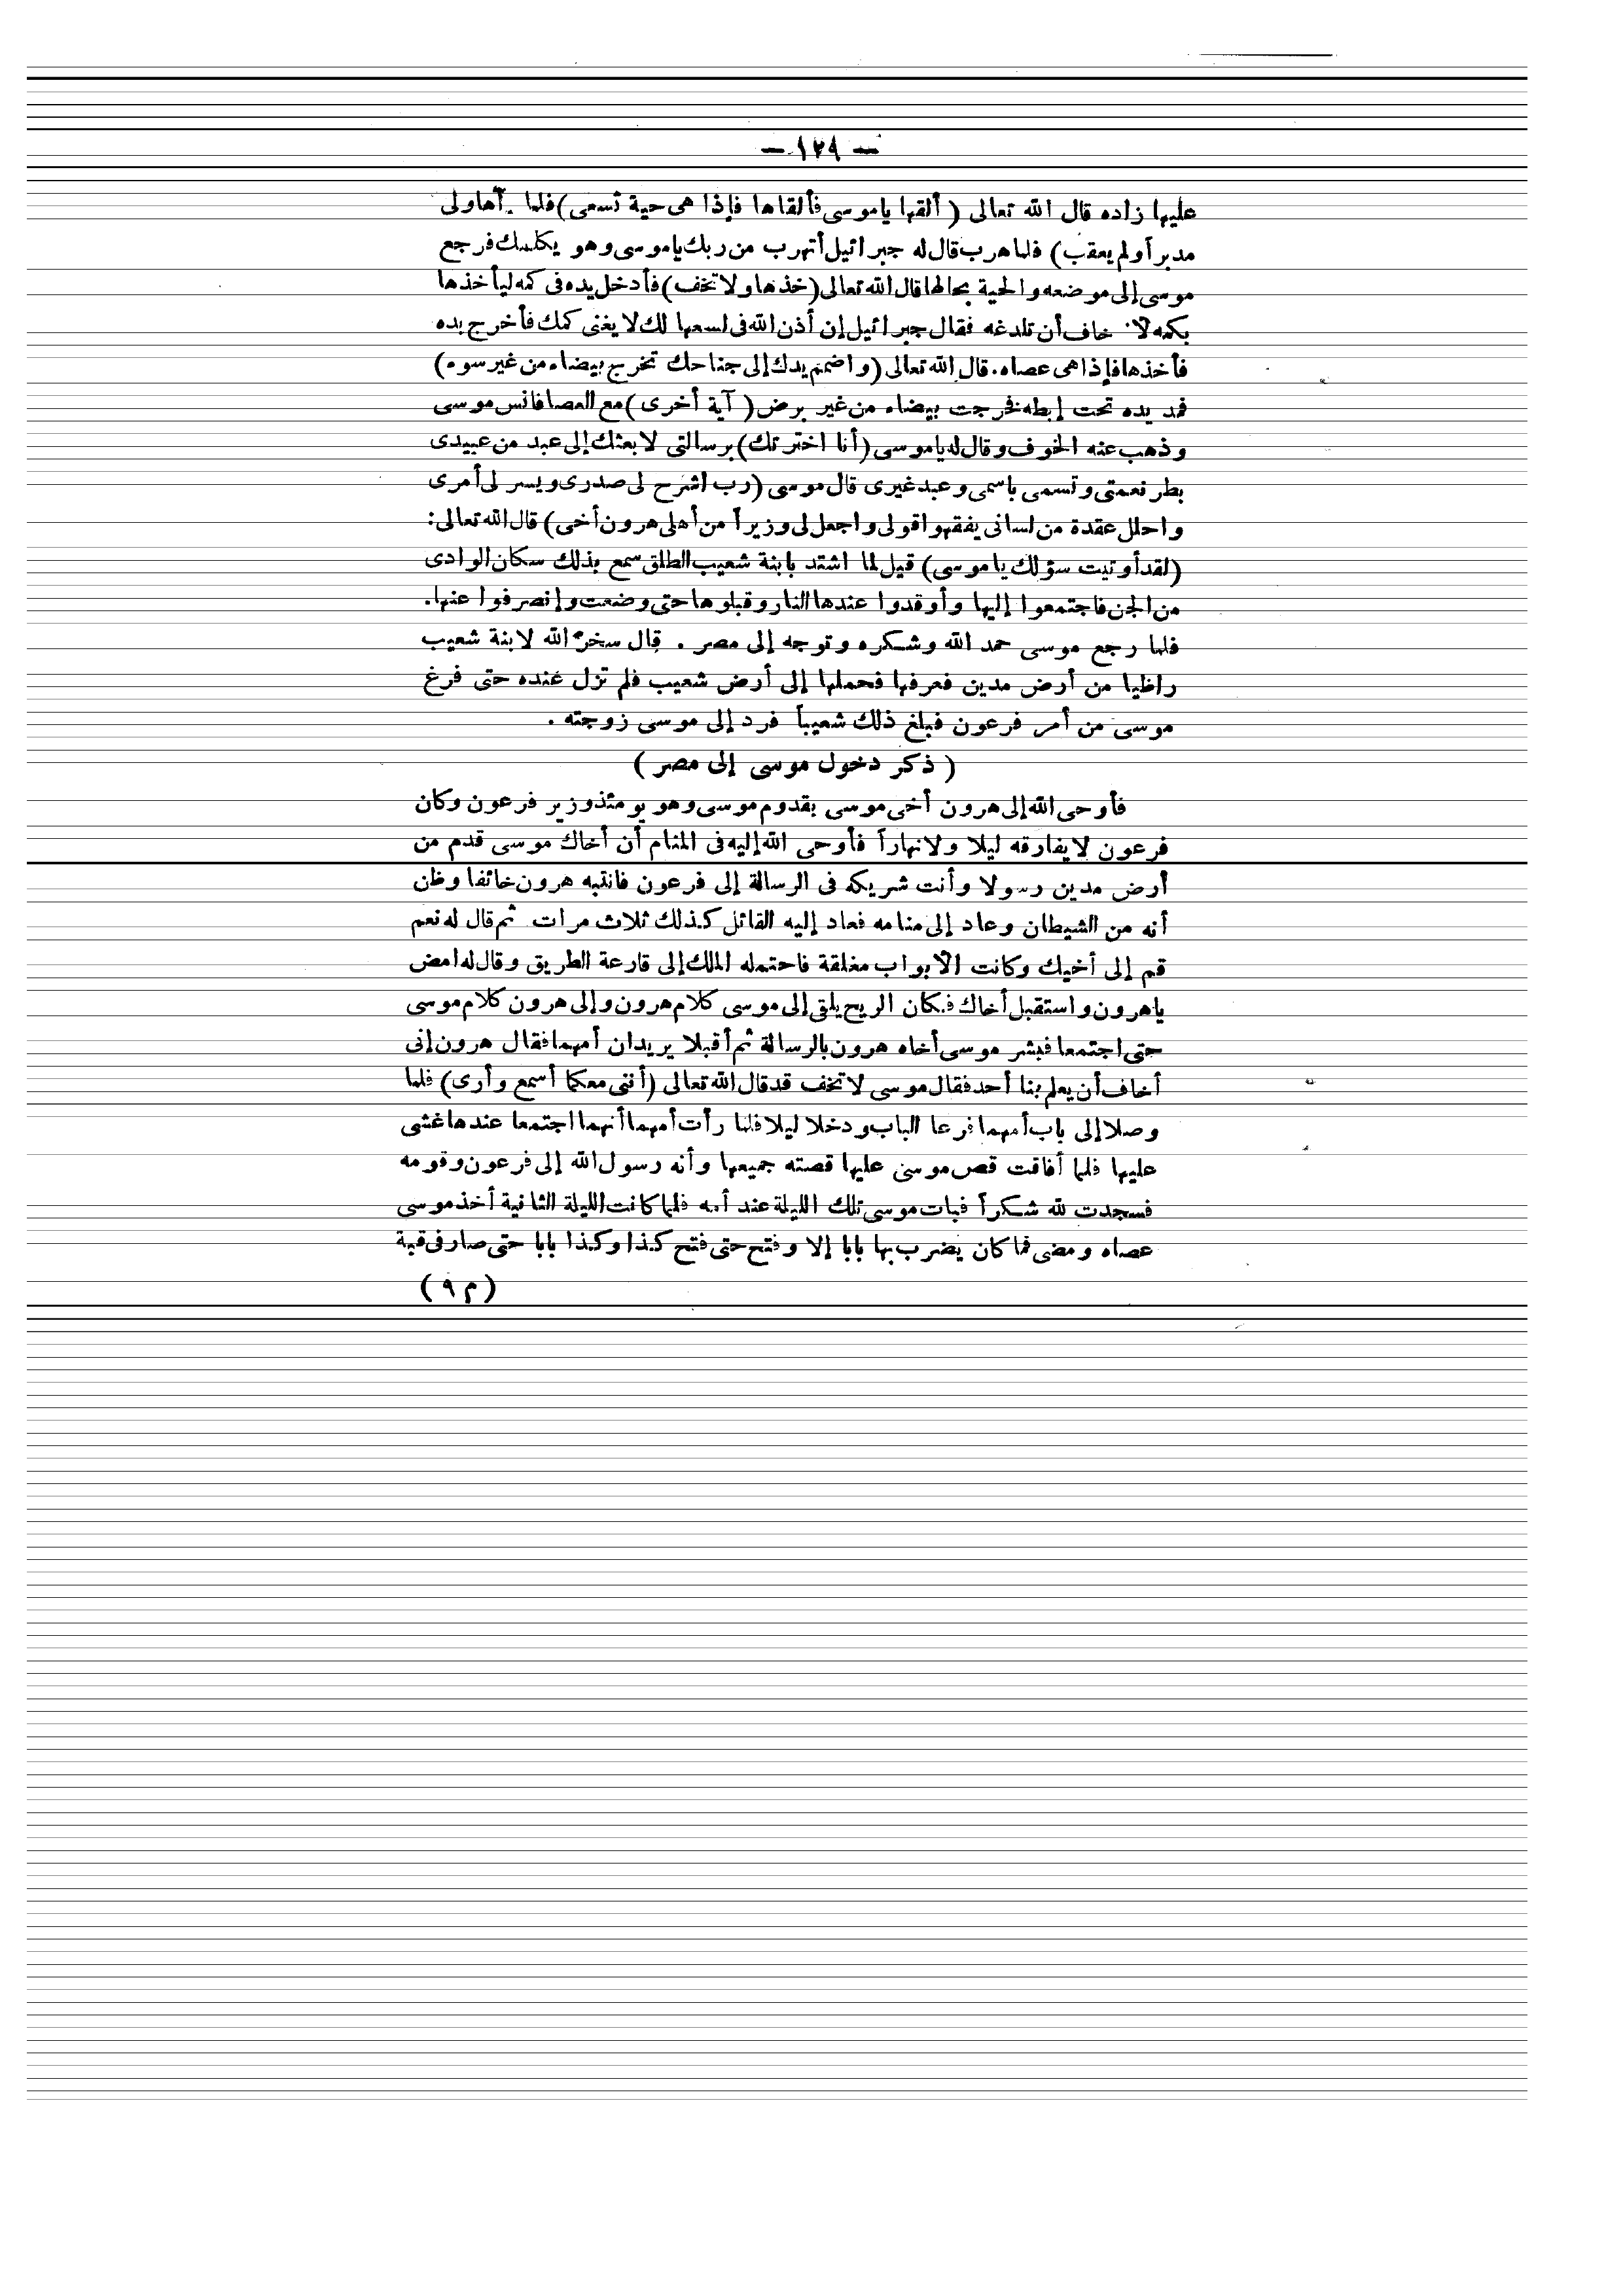 — ١٢٩ —
عليها زاده قال الله تعالى ( ألقها ياموسى فألقاها فإذا هى حية تسعى ) فلما رآها ولى
مدبرا ولم يعقب ) فلما هرب قال له جبرائيل أتهرب من ربك ياموسى وهو يكلمك فرجع
موسى إلى موضعه والحية بحالها قال الله تعالى (خذها ولا تخف) فأدخل يده فى كمه ليأخذها
بكمه لا خاف أن تلدغه فقال جبرائيل إن أذن الله فى لسعها لك لا يغنى كمك فأخرج يده
فأخذها فإذا هى عصاه . قال الله تعالى (واضمم يدك إلى جناحك تخرج بيضاء من غير سوء)
فمد يده تحت إبطه فخرجت بيضاء من غير برض ( آية أخرى ) مع العصا فانس موسى
وذهب عنه الخوف وقال له ياموسى (أنا اخترتك) برسالتى لابعثك إلى عبد من عبيدى
بطر نعمتى وتسمى باسمى وعبد غيرى قال موسى (رب اشرح لى صدرى ويسر لى أمرى
واحلل عقدة من لسانى يفقهوا قولى واجعل لى وزيراً من أهلى هرون أخى) قال الله تعالى :
(لقد أوتيت سؤلك ياموسى) قيل لما اشتد بابنة شعيب الطلق سمع بذلك سكان الوادى
من الجن فاجتمعوا إليها وأوقدوا عندها النار وقبلوها حتى وضعت وإنصرفوا عنها .
فلما رجع موسى حمد الله وشكره وتوجه إلى مصر . قال سخر الله لابنة شعيب
راظيا من أرض مدين فعرفها فحملها إلى أرض شعيب فلم تزل عنده حتى فرغ
موسى من أمر فرعون فبلغ ذلك شعيباً فرد إلى موسى زوجته .
( ذكر دخول موسى إلى مصر )
فأوحى الله إلى هرون أخى موسى بقدوم موسى وهو يومئذ وزير فرعون وكان
فرعون لا يفارقه ليلا ولا نهاراً فأوحى الله إليه فى المنام أن أخاك موسى قدم من
أرض مدين رسولا وأنت شريكه فى الرسالة إلى فرعون فانتبه هرون خائفا وظن
أنه من الشيطان وعاد إلى منامه فعاد إليه القائل كذلك ثلاث مرات ثم قال له نعم
قم إلى أخيك وكانت الابواب مغلقة فاحتمله الملك إلى قارعة الطريق وقال له امض
ياهرون واستقبل أخاك فكان الريح يلقى إلى موسى كلام هرون وإلى هرون كلام موسى
حتى اجتمعا فبشر موسى أخاه هرون بالرسالة ثم أقبلا يريدان أمهما فقال هرون إنى
أخاف أن يعلم بنا أحد فقال موسى لا تخف قد قال الله تعالى (أننى معكما أسمع وأرى) فلما
وصلا إلى باب أمهما قرعا الباب ودخلا ليلا فلما رأت أمهما أنهما اجتمعا عندها غشى
عليها فلما أفاقت قص موسى عليها قصته جميعها وأنه رسول الله إلى فرعون وقومه
فسجدت لله شكراً فبات موسى تلك الليلة عند أمه فلما كانت الليلة الثانية أخذ موسى
عصاه ومضى فما كان يضرب بها بابا إلا وفتح حتى فتح كذا وكذا بابا حتى صار فى قبة
( م ٩ )